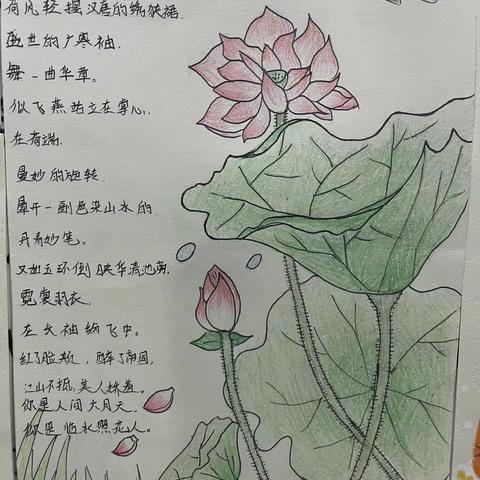 荷风轻摇汉唐的绮袂裾
盛世的广寒袖.
舞一曲华章。
似飞燕站立在掌心.
在荷端.
曼妙的旋转.
晕开一副色染山水的.
丹青妙笔。
又如玉环倒映华清池旁,
霓裳羽衣,
在长袖纷飞中。
红了脸颊,醉了帝国,
江山不抵,美人娇羞。
你是人间六月天,
你是临水照花人。